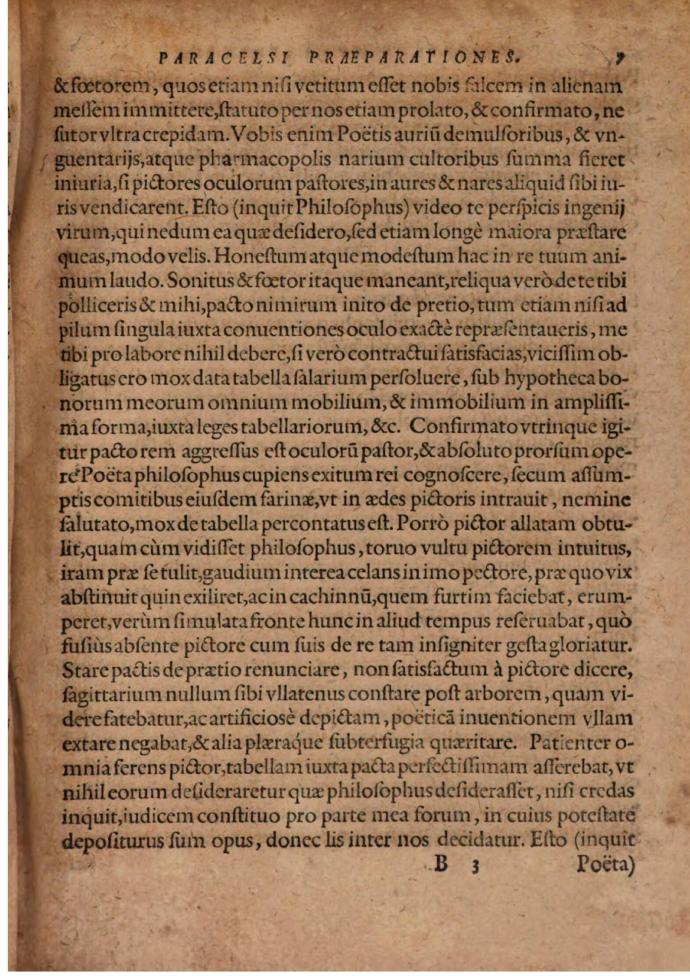 PARACELSI PRÆPARATIONES. 7
& fœtorem, quos etiam niſi vetitum eſſet nobis falcem in alienam
meſſem immittere, ſtatuto per nos etiam prolato, & confirmato, ne
ſutor vltra crepidam. Vobis enim Poëtis auriū demulſoribus, & vn-
guentarijs, atque pharmacopolis narium cultoribus ſumma fieret
iniuria, ſi pictores oculorum paſtores, in aures & nares aliquid ſibi iu-
ris vendicarent. Eſto (inquit Philoſophus) video te perſpicis ingenij
virum, qui nedum ea quæ deſidero, ſed etiam longè maiora præſtare
queas, modo velis. Honeſtum atque modeſtum hac in re tuum ani-
mum laudo. Sonitus & fœtor itaque maneant, reliqua verò de te tibi
polliceris & mihi, pacto nimirum inito de pretio, tum etiam niſi ad
pilum ſingula iuxta conuentiones oculo exactè repræſentaueris, me
tibi pro labore nihil debere, ſi verò contractui ſatisfacias, viciſſim ob-
ligatus ero mox data tabella ſalarium perſoluere, ſub hypotheca bo-
norum meorum omnium mobilium, & immobilium in ampliſſi-
ma forma, iuxta leges tabellariorum, &c. Confirmato vtrinque igi-
tur pacto rem aggreſſus eſt oculorū paſtor, & abſoluto prorſum ope-
re Poëta philoſophus cupiens exitum rei cognoſcere, ſecum aſſum-
ptis comitibus eiuſdem farinæ, vt in ædes pictoris intrauit, nemine
ſalutato, mox de tabella percontatus eſt. Porrò pictor allatam obtu-
lit, quam cùm vidiſſet philoſophus, toruo vultu pictorem intuitus,
iram præ ſe tulit, gaudium interea celans in imo pectore, præ quo vix
abſtinuit quin exiliret, ac in cachinnū, quem furtim faciebat, erum-
peret, verùm ſimulata fronte hunc in aliud tempus reſeruabat, quò
fuſiùs abſente pictore cum ſuis de re tam inſigniter geſta gloriatur.
Stare pactis de prætio renunciare, non ſatisfactum à pictore dicere,
ſagittarium nullum ſibi vllatenus conſtare poſt arborem, quam vi-
dere fatebatur, ac artificiosè depictam, poëticā inuentionem vllam
extare negabat, & alia plæraq́ue ſubterfugia quæritare. Patienter o-
mnia ferens pictor, tabellam iuxta pacta perfectiſſimam aſſerebat, vt
nihil eorum deſideraretur quæ philoſophus deſideraſſet, niſi credas
inquit, iudicem conſtituo pro parte mea forum, in cuius poteſtate
depoſiturus ſum opus, donec lis inter nos decidatur. Eſto (inquit
B 3 Poëta)